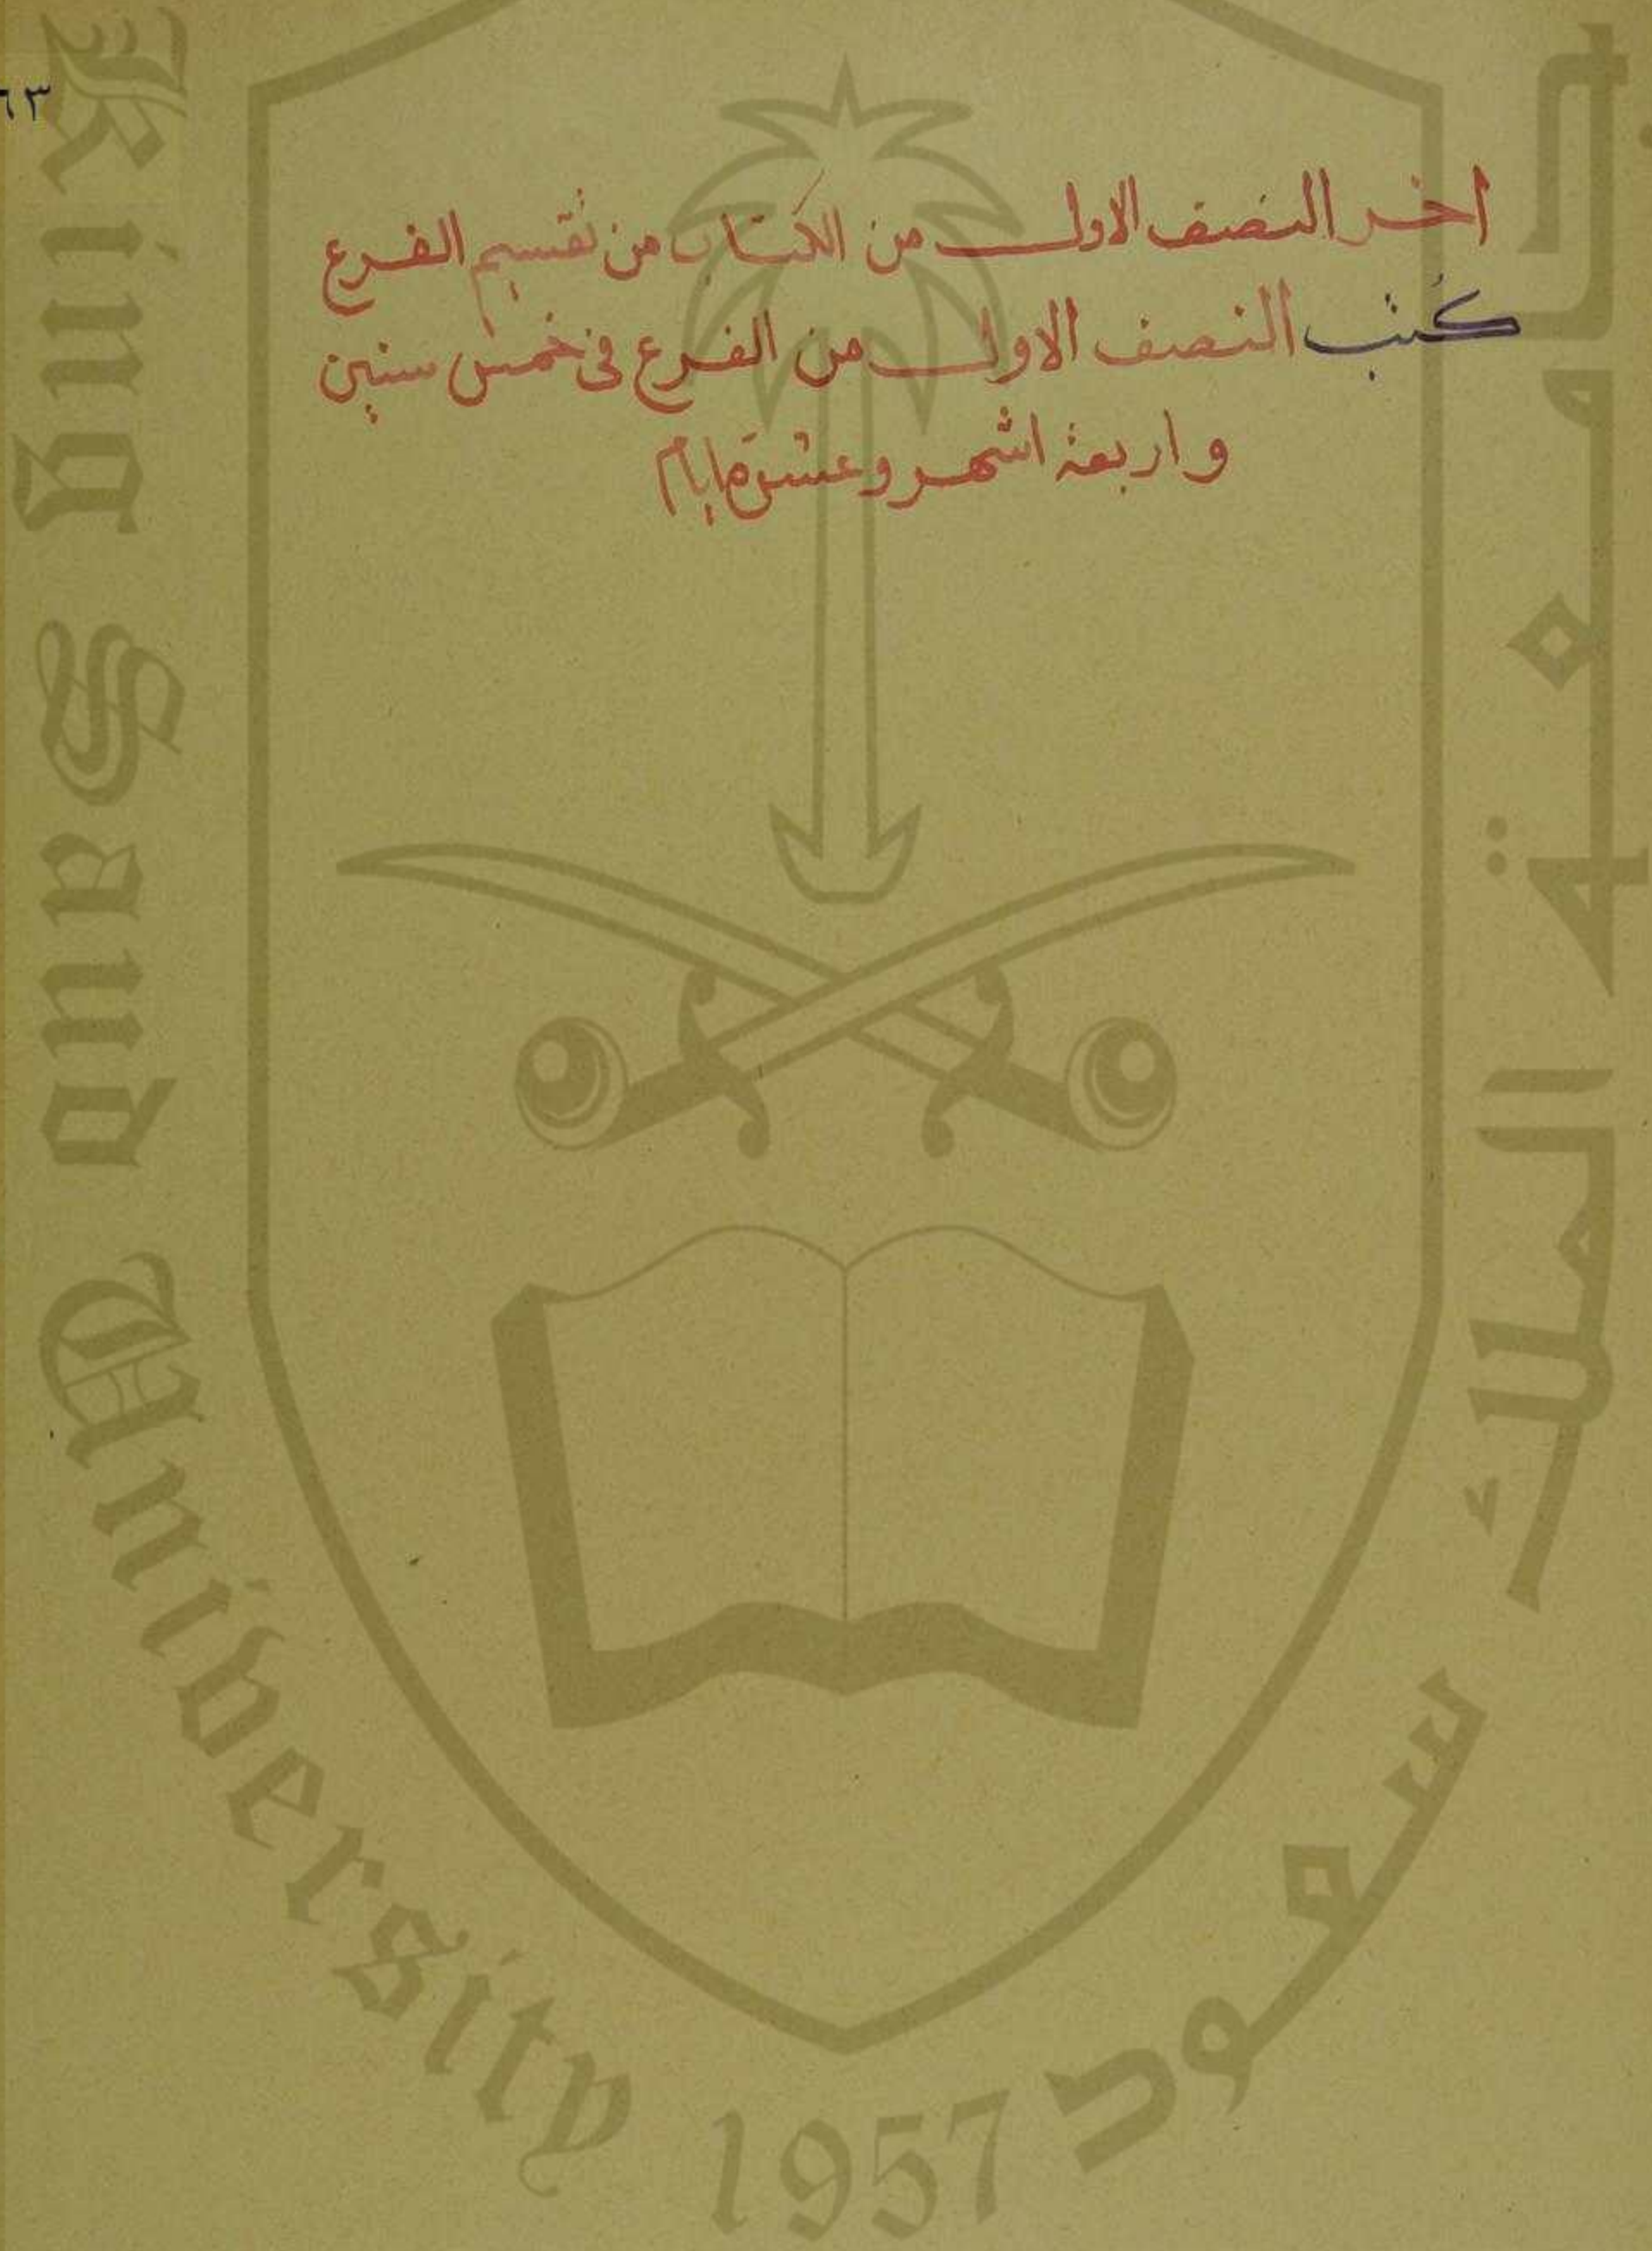 ٦٣
اخر النصف الاول من الكتاب من تقسيم الفرع
كُتب النصف الاول من الفرع في خمس سنين
و اربعة اشهر وعشرة ايام
King Saud University
1957
جامعة الملك سعود